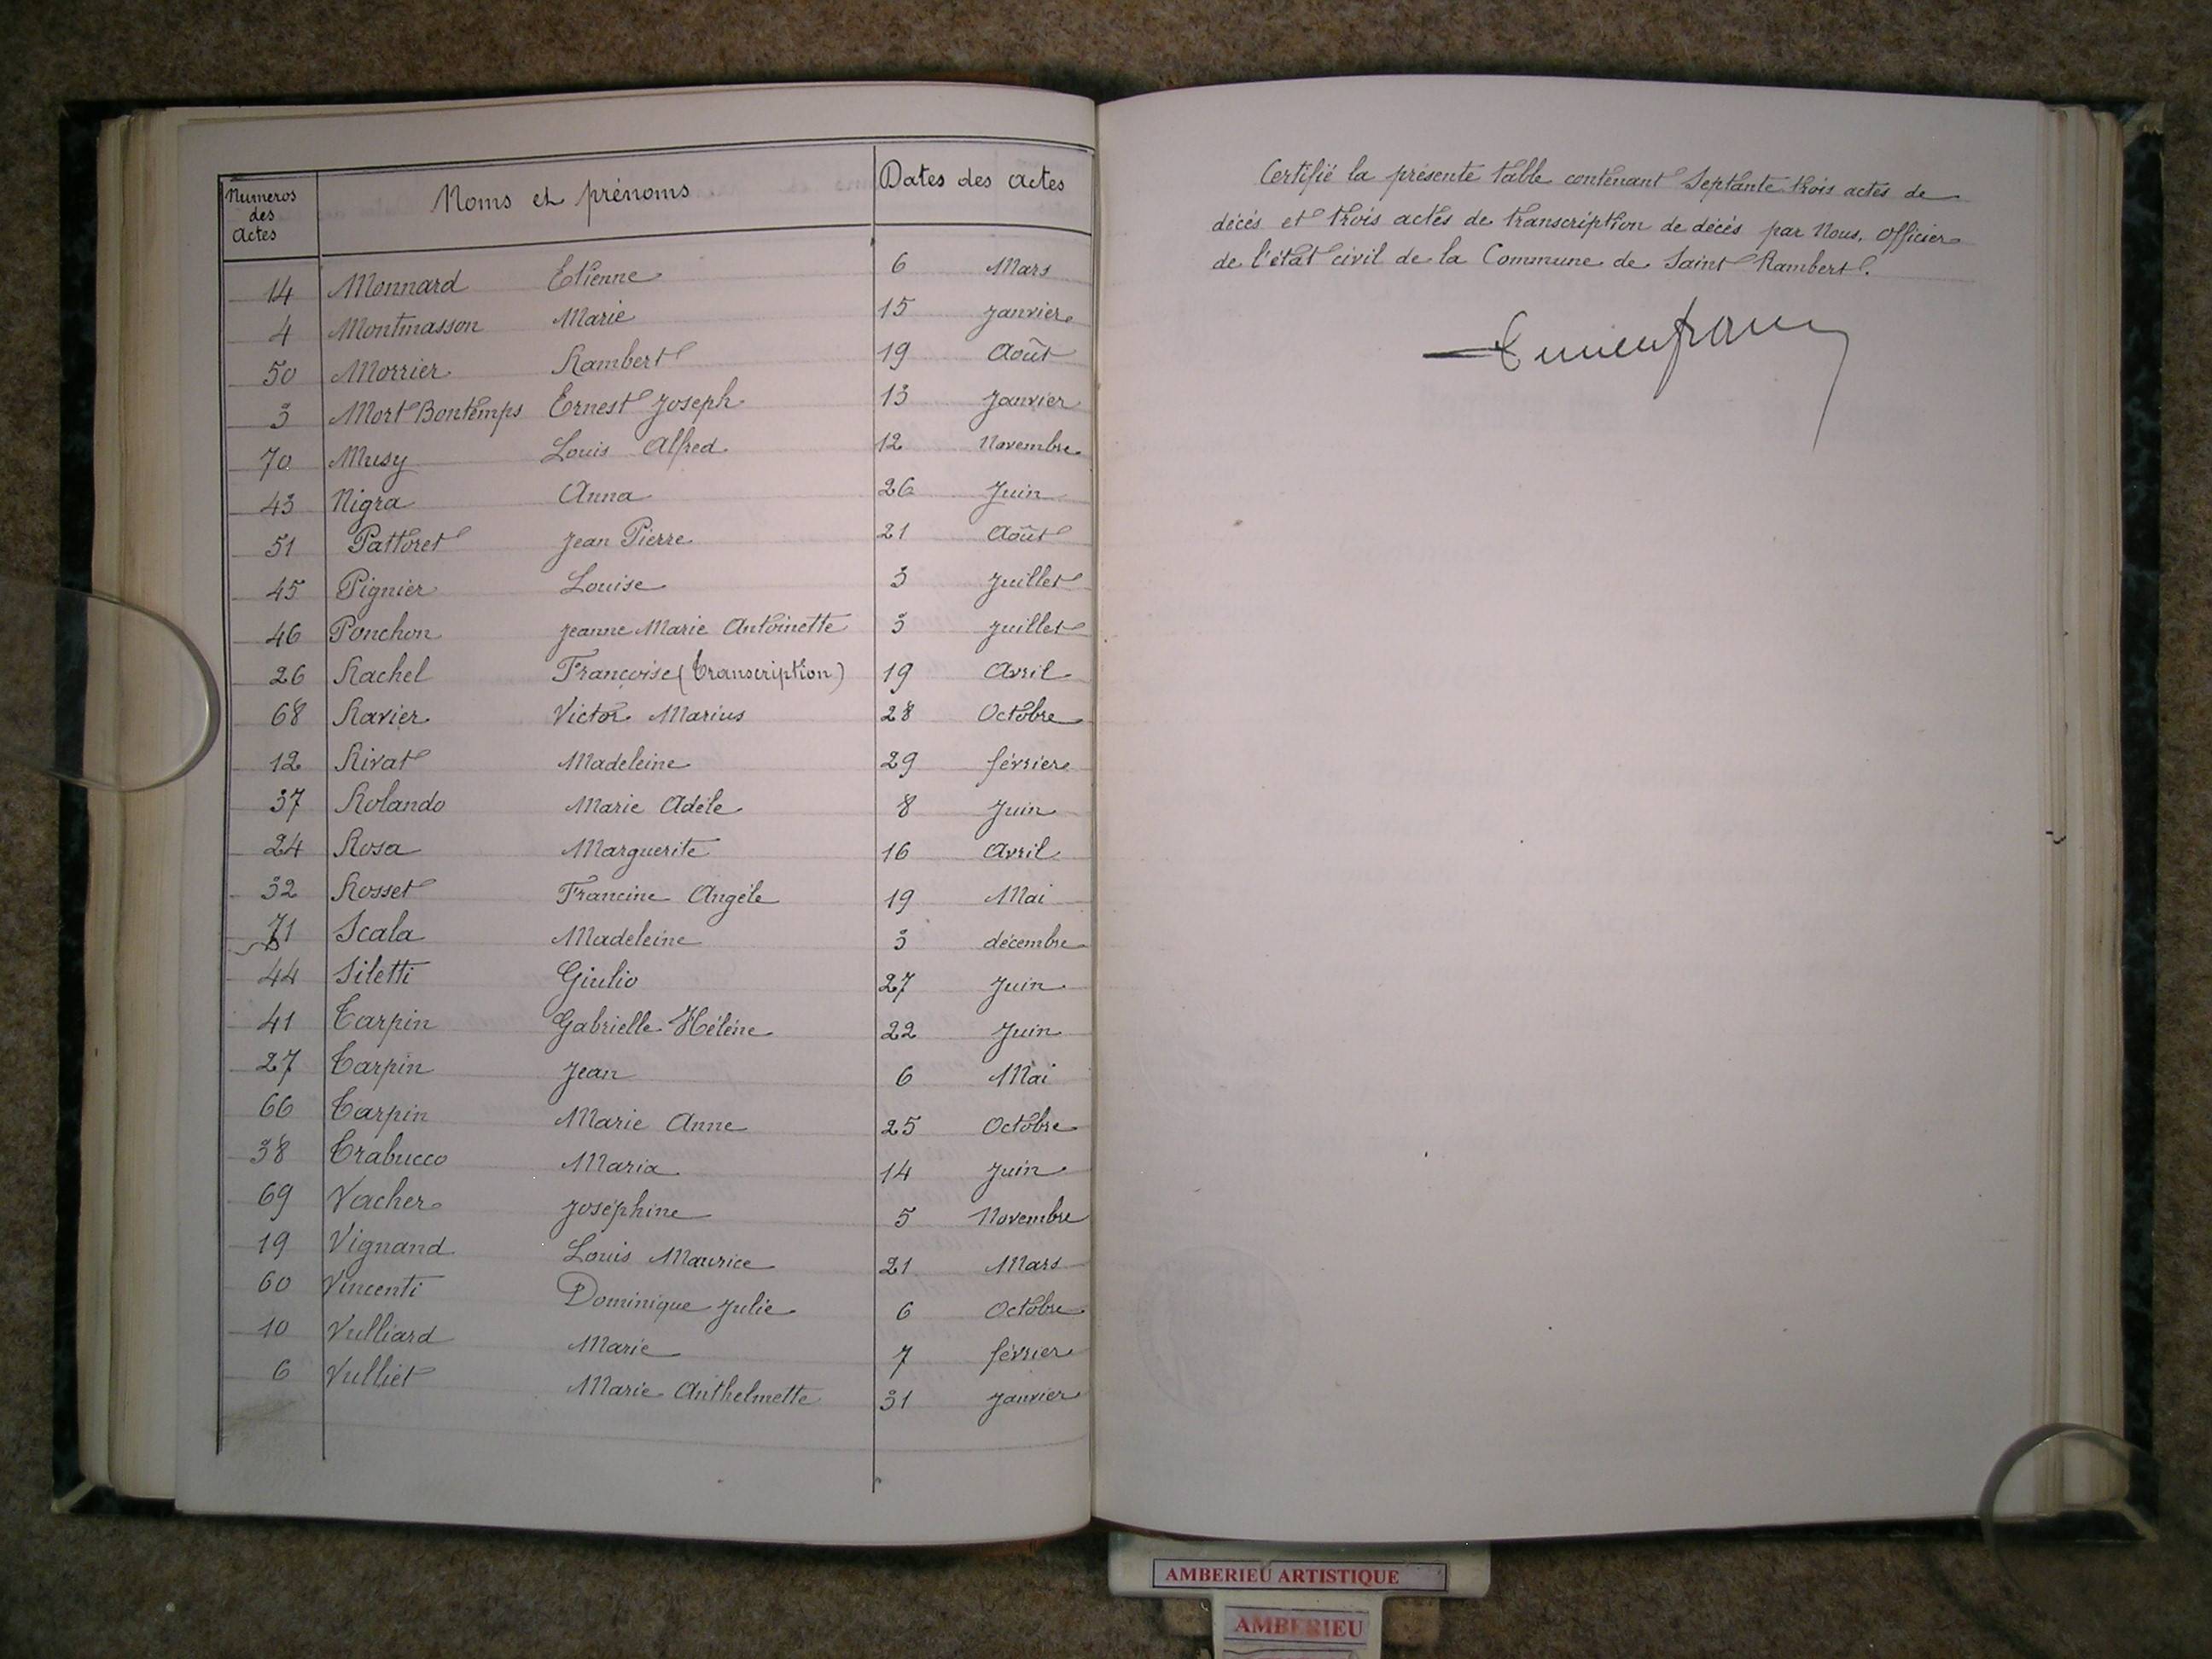 Numeros des Actes Noms et prénoms Dates des actes
14 Monnard Etienne 6 Mars
4 Montmasson Marie 15 Janvier
50 Morrier Rambert 19 Août
3 Mort Bontemps Ernest Joseph 13 Janvier
70 Musy Louis Alfred 12 Novembre
43 Nigra Anna 26 Juin
51 Pattoret Jean Pierre 21 Août
45 Pignier Louise 3 Juillet
46 Ponchon Jeanne Marie Antoinette 3 Juillet
26 Rachel Françoise (Transcription) 19 Avril
68 Ravier Victor Marius 28 Octobre
12 Rivat Madeleine 29 février
37 Rolando Marie Adèle 8 Juin
24 Rosa Marguerite 16 Avril
32 Rosset Francine Angèle 19 Mai
71 Scala Madeleine 3 décembre
44 Siletti Giulio 27 Juin
41 Tarpin Gabrielle Hélène 22 Juin
27 Tarpin Jean 6 Mai
66 Tarpin Marie Anne 25 Octobre
38 Trabucco Maria 14 Juin
69 Vacher Joséphine 5 Novembre
19 Vignand Louis Maurice 21 Mars
60 Vincenti Dominique Julie 6 Octobre
10 Vulliard Marie 7 février
6 Vulliet Marie Anthelmette 31 Janvier
Certifié la présente table contenant Septante trois actes de
décès et trois actes de transcription de décès par Nous, Officier
de l'état civil de la Commune de Saint Rambert.
AMBERIEU ARTISTIQUE
AMBERIEU